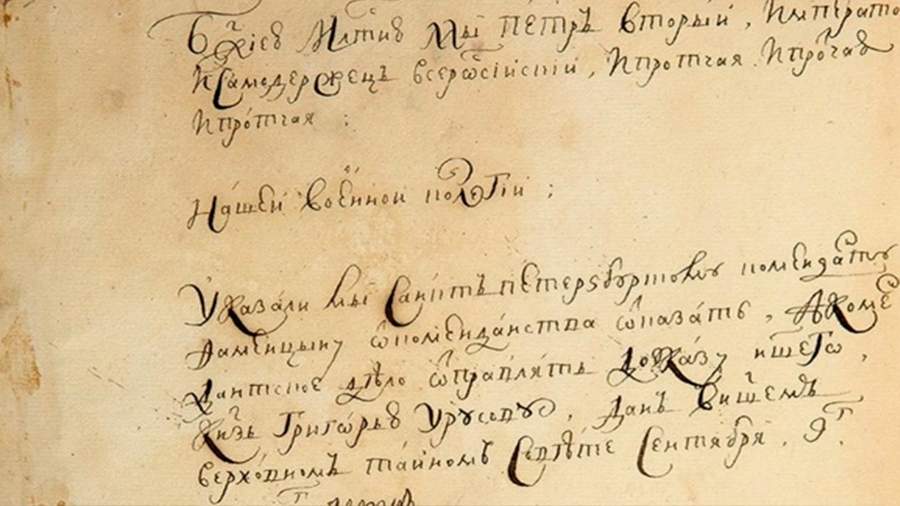 Бжїеѧ Млтию Мы ПЕТРЪ Вторыи, Императо
И Самодержецъ всерѡсїискїи, И протчая. И прѡчаѧ
И протчая :
Нашей воѐнной колегїи ;
Указали мы Санктъ петерзбургскому коменданту
ѿ комендантства ѿказать, А коме
дантское дѣло ѿправлять до указу нш҃его,
Кнзь Григорью Урусову, Данъ в нашемъ
верховномъ тайномъ Совѣте Сентября. 9г.